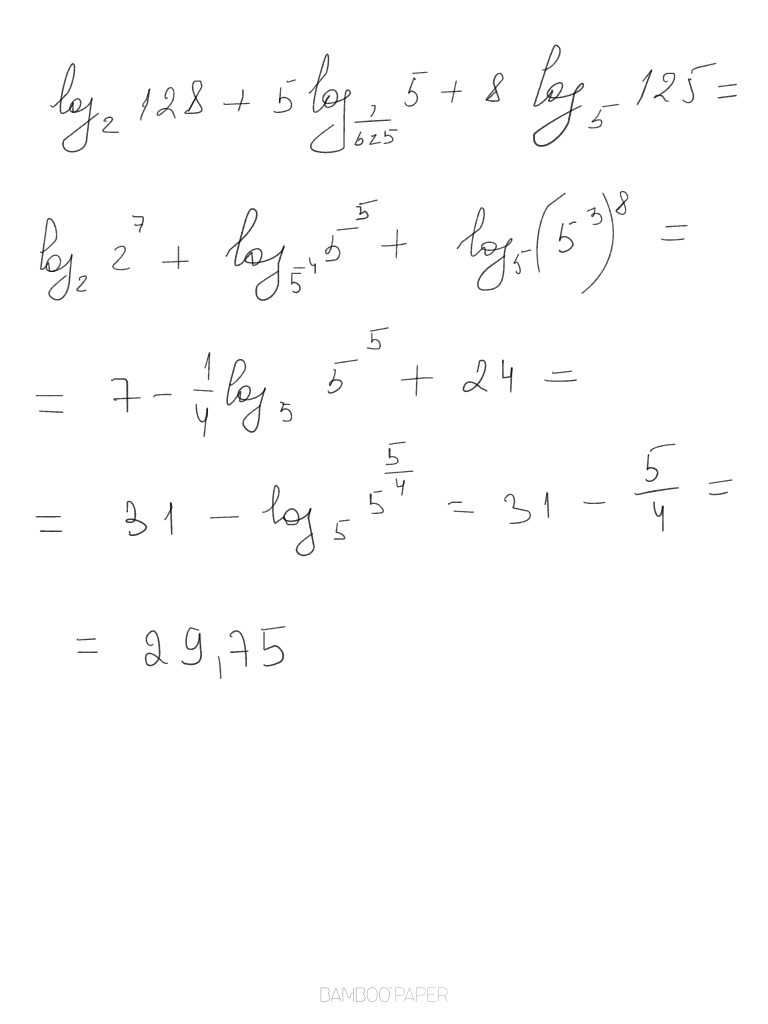 log₂ 128 + 5 log_(1/625) 5 + 8 log₅ 125 =
log₂ 2⁷ + log_(5⁴) 5⁵ + log₅ (5³)⁸ =
= 7 - 1/4 log₅ 5⁵ + 24 =
= 31 - log₅ 5^(5/4) = 31 - 5/4 =
= 29,75
BAMBOO PAPER